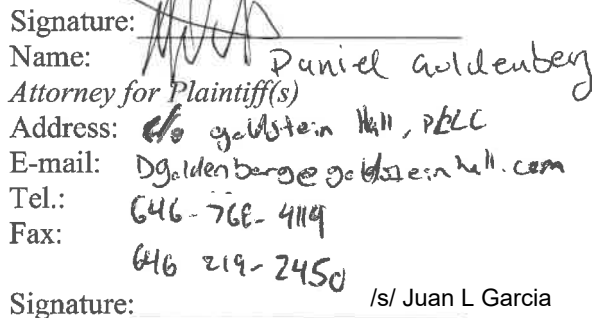 Signature:
Name: Daniel Goldenberg
Attorney for Plaintiff(s)
Address: c/o Goldstein Hall, PLLC
E-mail: Dgoldenberg@goldsteinhall.com
Tel.: 646-768-4119
Fax: 646 219-2450
Signature: /s/ Juan L Garcia